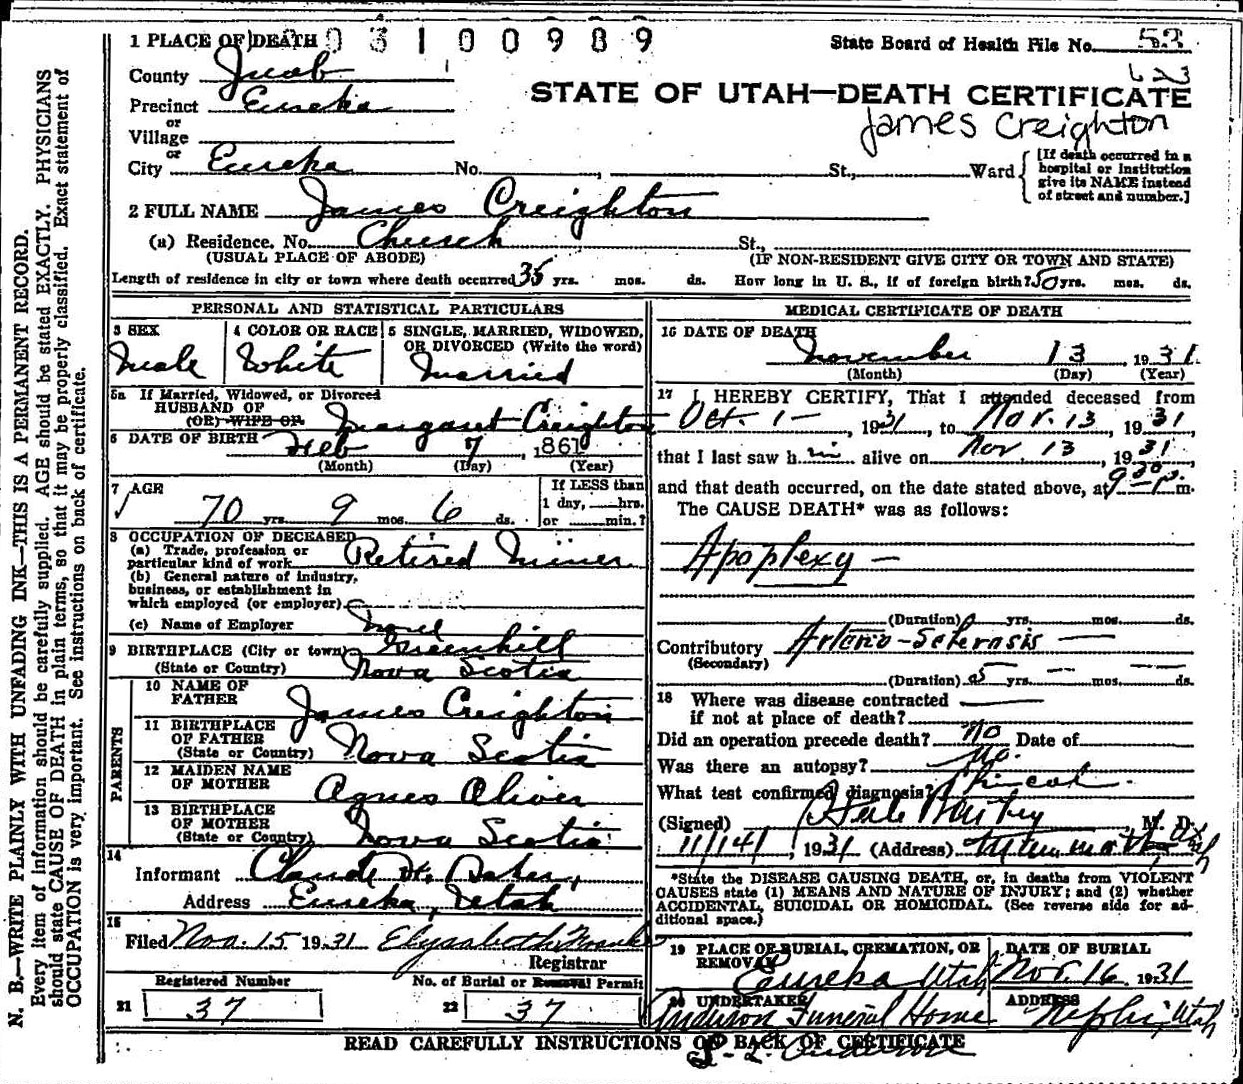 1 PLACE OF DEATH 0 3 1 0 0 9 8 9 State Board of Health File No. 53
County Juab 623
Precinct Eureka STATE OF UTAH—DEATH CERTIFICATE
or James Creighton
Village
or
City Eureka No. , St., Ward [If death occurred in a hospital or institution give its NAME instead of street and number.]
2 FULL NAME James Creighton
(a) Residence. No. Church St.,
(USUAL PLACE OF ABODE) (IF NON-RESIDENT GIVE CITY OR TOWN AND STATE)
Length of residence in city or town where death occurred 35 yrs. mos. ds. How long in U. S., if of foreign birth? 50 yrs. mos. ds.
PERSONAL AND STATISTICAL PARTICULARS
3 SEX 4 COLOR OR RACE 5 SINGLE, MARRIED, WIDOWED,
OR DIVORCED (Write the word)
Male White Married
5a If Married, Widowed, or Divorced
HUSBAND OF
(OR) WIFE OF Margaret Creighton
6 DATE OF BIRTH Feb 7, 1861
(Month) (Day) (Year)
7 AGE If LESS than
1 day, hrs.
70 yrs. 9 mos. 6 ds. or min.?
8 OCCUPATION OF DECEASED
(a) Trade, profession or
particular kind of work Retired Miner
(b) General nature of industry,
business, or establishment in
which employed (or employer)
(c) Name of Employer
9 BIRTHPLACE (City or town) Greenhill
(State or Country) Nova Scotia
PARENTS
10 NAME OF
FATHER James Creighton
11 BIRTHPLACE
OF FATHER
(State or Country) Nova Scotia
12 MAIDEN NAME
OF MOTHER Agnes Oliver
13 BIRTHPLACE
OF MOTHER
(State or Country) Nova Scotia
14
Informant Claude
Address Eureka, Utah
15
Filed Nov. 15 1931
Registrar
Registered Number No. of Burial or Removal Permit
21 37 22 37
MEDICAL CERTIFICATE OF DEATH
16 DATE OF DEATH
November 13, 1931.
(Month) (Day) (Year)
17 I HEREBY CERTIFY, That I attended deceased from
Oct. 1-, 1931, to Nov. 13, 1931
that I last saw him alive on Nov. 13, 1931,
and that death occurred, on the date stated above, at 9 30 P. m.
The CAUSE DEATH* was as follows:
Apoplexy —
(Duration) yrs. mos. ds.
Contributory Arterio-Sclerosis —
(Secondary)
(Duration) 5 yrs. — mos. — ds.
18 Where was disease contracted
if not at place of death?
Did an operation precede death? No Date of
Was there an autopsy? No.
What test confirmed diagnosis?
(Signed) Steele Bailey, M. D.
11/14/, 1931 (Address) Mammoth Utah
*State the DISEASE CAUSING DEATH, or, in deaths from VIOLENT
CAUSES state (1) MEANS AND NATURE OF INJURY; and (2) whether
ACCIDENTAL, SUICIDAL OR HOMICIDAL. (See reverse side for ad-
ditional space.)
19 PLACE OF BURIAL, CREMATION, OR DATE OF BURIAL
REMOVAL
Eureka Utah Nov. 16 1931
20 UNDERTAKER ADDRESS
Anderson Funeral Home Nephi, Utah
READ CAREFULLY INSTRUCTIONS ON BACK OF CERTIFICATE
Anderson
N. B.—WRITE PLAINLY WITH UNFADING INK—THIS IS A PERMANENT RECORD.
Every item of information should be carefully supplied. AGE should be stated EXACTLY. PHYSICIANS
should state CAUSE OF DEATH in plain terms, so that it may be properly classified. Exact statement of
OCCUPATION is very important. See instructions on back of certificate.